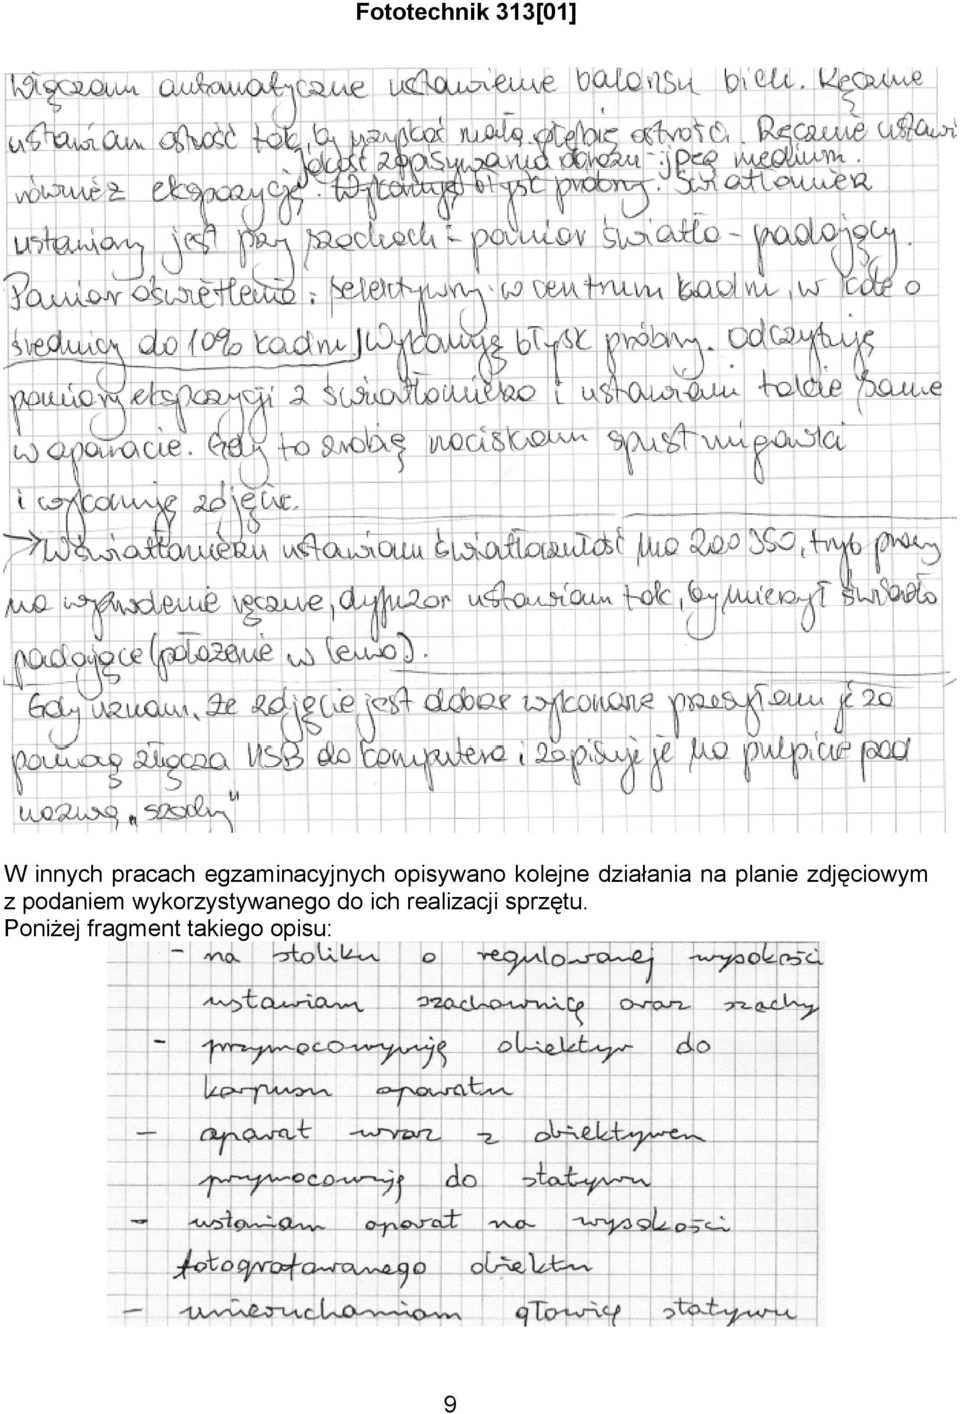 Fototechnik 313[01]
Włączam automatyczne ustawienie balansu bieli. Ręcznie
ustawiam ostrość tak, by uzyskać małą głębię ostrości. Ręcznie ustawi
Jakość zapisywania obrazu - jpeg medium.
również ekspozycję. Wykonuję błysk próbny. Światłomierz
ustawiony jest przy szachach - pomiar światła - padający.
Pomiar oświetlenia: selektywny - w centrum kadru, w kole o
średnicy do 10% kadru Wykonuję błysk próbny. Odczytuję
pomiary ekspozycji z światłomierza i ustawiam takie same
w aparacie. Gdy to zrobię naciskam spust migawki
i wykonuję zdjęcie.
→ W światłomierzu ustawiam światłoczułość na 200 ISO, tryb pracy
na wyzwolenie ręczne, dyfuzor ustawiam tak, by mierzył światło
padające (położenie w lewo).
Gdy uznam, że zdjęcie jest dobrze wykonane przesyłam je za
pomocą złącza USB do komputera i zapisuję je na pulpicie pod
nazwą „szachy"
W innych pracach egzaminacyjnych opisywano kolejne działania na planie zdjęciowym
z podaniem wykorzystywanego do ich realizacji sprzętu.
Poniżej fragment takiego opisu:
- na stoliku o regulowanej wysokości
ustawiam szachownicę oraz szachy
- przymocowywuję obiektyw do
korpusu aparatu
- aparat wraz z obiektywem
przymocowuję do statywu
- ustawiam aparat na wysokości
fotografowanego obiektu
- unieruchamiam głowicę statywu
9